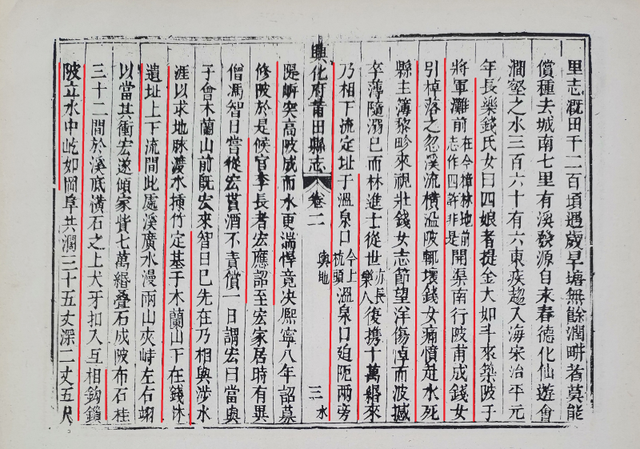 里志溉田千二百頃遇歲旱塘無餘潤畊者莫能
償種去城南七里有溪發源自永春德化仙遊會
澗壑之水三百六十有六東疾趨入海宋治平元
年長樂錢氏女曰四娘者提金大如斗來築陂于
將軍灘前在今樟林地前志作四許非是開渠南行陂甫成錢女
引棹落之忽溪流橫溢陂輒壞錢女痛憤赴水死
縣主簿黎畛來視壯錢女志節望洋傷悼而波撼
卒薄隨溺已而林進士從世亦長樂人後携十萬緡來
乃相下流定址于溫泉口今上杭頭溫泉口迫阨兩旁
興化府莆田縣志 卷二 輿地 三 水
隄觧突高陂成而水更湍悍竟决熙寧八年詔募
修陂於是候官李長者宏應詔至宏家居時有異
僧馮智日當從宏貰酒不責償一日謂宏曰當與
子會木蘭山前旣宏來智日已先在乃相與涉水
涯以求地脉濺水揷竹定基于木蘭山下在錢林
遺址上下流間此處溪廣水漫兩山夾峙左右翊
以當其衝宏遂傾家貲七萬緡疊石成陂布石柱
三十二間於溪底橫石之上犬牙扣入互相鈎鎖
陂立水中屹如岡阜共濶三十五丈深二丈五尺